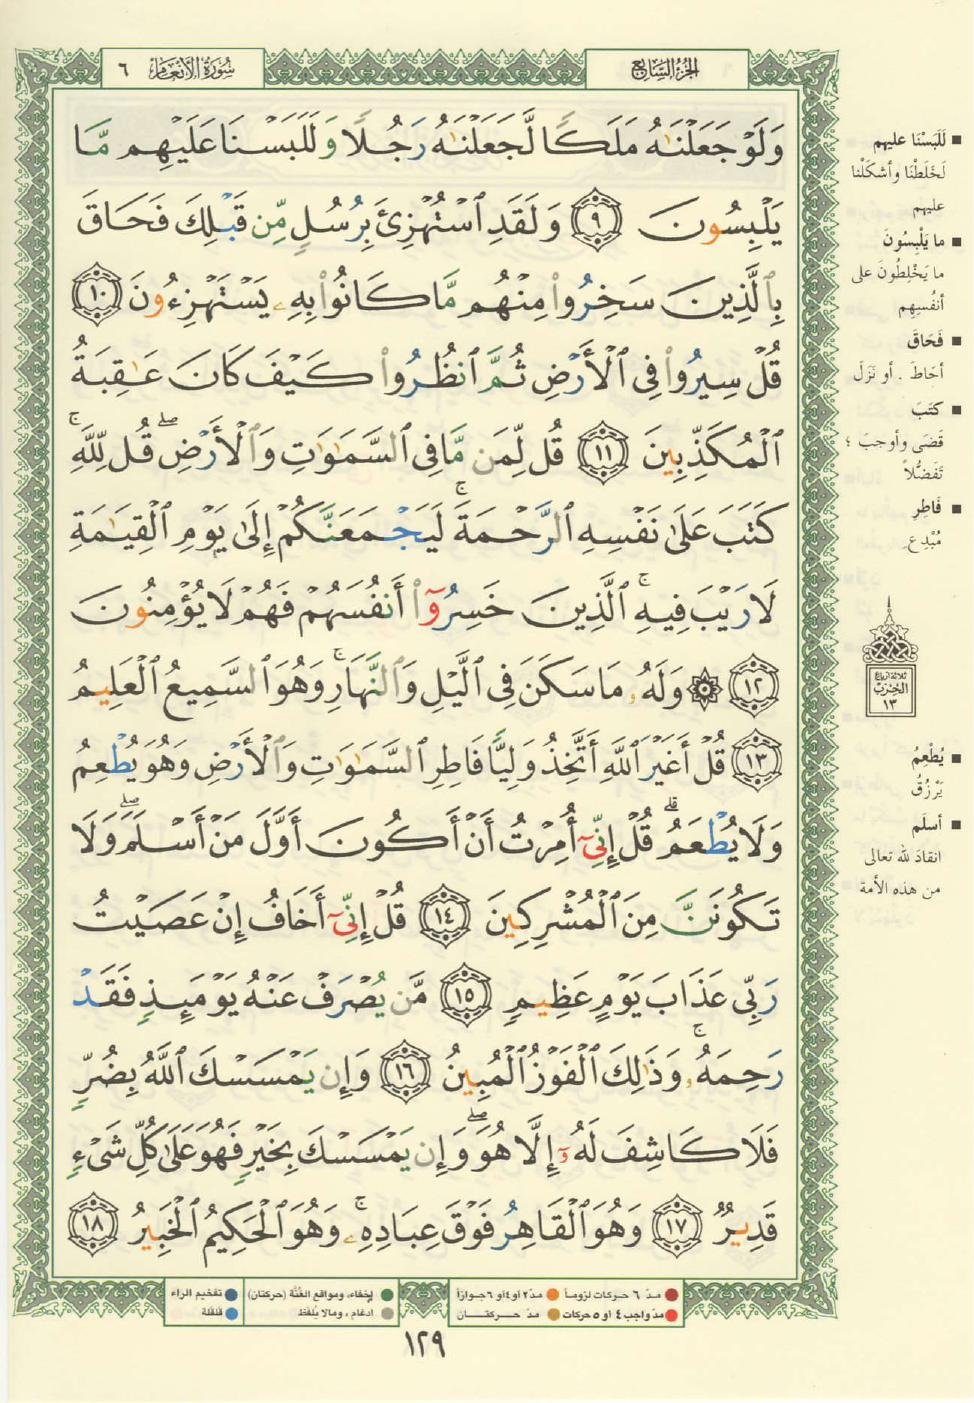 سُورَةُ الأَنْعَام ٦
الجُزءُ السَّابِعُ
وَلَوْ جَعَلْنَٰهُ مَلَكًا لَّجَعَلْنَٰهُ رَجُلًا وَلَلَبَسْنَا عَلَيْهِم مَّا
يَلْبِسُونَ ٩ وَلَقَدِ ٱسْتُهْزِئَ بِرُسُلٍ مِّن قَبْلِكَ فَحَاقَ
بِٱلَّذِينَ سَخِرُوا۟ مِنْهُم مَّا كَانُوا۟ بِهِۦ يَسْتَهْزِءُونَ ١٠
قُلْ سِيرُوا۟ فِى ٱلْأَرْضِ ثُمَّ ٱنظُرُوا۟ كَيْفَ كَانَ عَٰقِبَةُ
ٱلْمُكَذِّبِينَ ١١ قُل لِّمَن مَّا فِى ٱلسَّمَٰوَٰتِ وَٱلْأَرْضِ ۖ قُل لِّلَّهِ ۚ
كَتَبَ عَلَىٰ نَفْسِهِ ٱلرَّحْمَةَ ۚ لَيَجْمَعَنَّكُمْ إِلَىٰ يَوْمِ ٱلْقِيَٰمَةِ
لَا رَيْبَ فِيهِ ۚ ٱلَّذِينَ خَسِرُوٓا۟ أَنفُسَهُمْ فَهُمْ لَا يُؤْمِنُونَ
١٢ ۞ وَلَهُۥ مَا سَكَنَ فِى ٱلَّيْلِ وَٱلنَّهَارِ ۚ وَهُوَ ٱلسَّمِيعُ ٱلْعَلِيمُ
١٣ قُلْ أَغَيْرَ ٱللَّهِ أَتَّخِذُ وَلِيًّا فَاطِرِ ٱلسَّمَٰوَٰتِ وَٱلْأَرْضِ وَهُوَ يُطْعِمُ
وَلَا يُطْعَمُ ۗ قُلْ إِنِّىٓ أُمِرْتُ أَنْ أَكُونَ أَوَّلَ مَنْ أَسْلَمَ ۖ وَلَا
تَكُونَنَّ مِنَ ٱلْمُشْرِكِينَ ١٤ قُلْ إِنِّىٓ أَخَافُ إِنْ عَصَيْتُ
رَبِّى عَذَابَ يَوْمٍ عَظِيمٍ ١٥ مَّن يُصْرَفْ عَنْهُ يَوْمَئِذٍ فَقَدْ
رَحِمَهُۥ ۚ وَذَٰلِكَ ٱلْفَوْزُ ٱلْمُبِينُ ١٦ وَإِن يَمْسَسْكَ ٱللَّهُ بِضُرٍّ
فَلَا كَاشِفَ لَهُۥٓ إِلَّا هُوَ ۖ وَإِن يَمْسَسْكَ بِخَيْرٍ فَهُوَ عَلَىٰ كُلِّ شَىْءٍ
قَدِيرٌ ١٧ وَهُوَ ٱلْقَاهِرُ فَوْقَ عِبَادِهِۦ ۚ وَهُوَ ٱلْحَكِيمُ ٱلْخَبِيرُ ١٨
■ لَلَبَسْنَا عليهم
لَخَلَطْنَا وأشكَلْنا
عليهم
■ ما يَلْبِسُونَ
ما يَخْلِطُونَ على
أنفُسِهم
■ فَحَاقَ
أحَاطَ . أو نَزَلَ
■ كَتَبَ
قَضَى وأوجبَ ؛
تَفَضُّلاً
■ فَاطِرِ
مُبْدِع
ثلاثة أرباع
الحِزب
١٣
■ يُطْعِمُ
يَرْزُقُ
■ أسلَم
انقادَ لله تعالى
من هذه الأمة
مدّ ٦ حركات لزوماً ● مدّ ٢ او ٤ او ٦ جوازاً
مدّ واجب ٤ او ٥ حركات ● مدّ حركتان
إخفاء، ومواقع الغُنَّة (حركتان)
ادغام ، ومالا يُلفَظ
تفخيم الراء
قلقلة
١٢٩